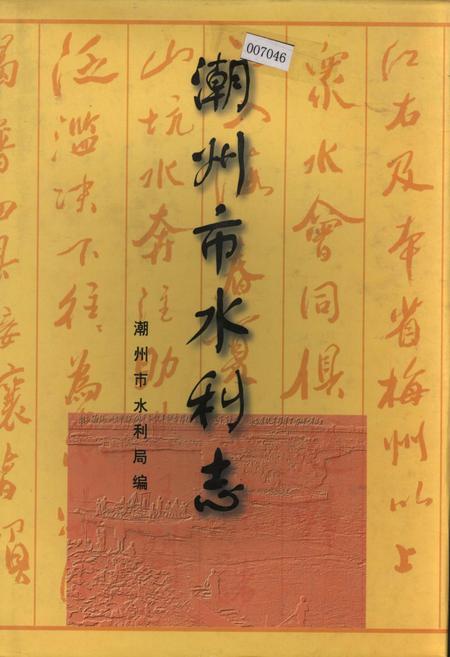 007046
潮州市水利志
潮州市水利局编
江右及本省梅州以上
众水會同俱
山坑水奔注助
泛滥决下往為